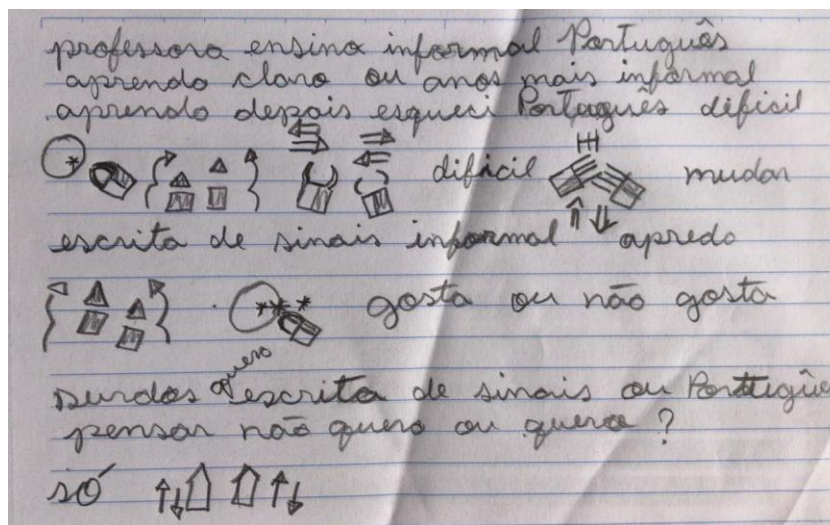 professora ensina informal Português
aprendo claro ou anos mais informal
aprendo depois esqueci Português dificil
dificil mudar
escrita de sinais informal apredo
gosta ou não gosta
quero
surdos escrita de sinais ou Portuguê
pensar não quero ou quero ?
só